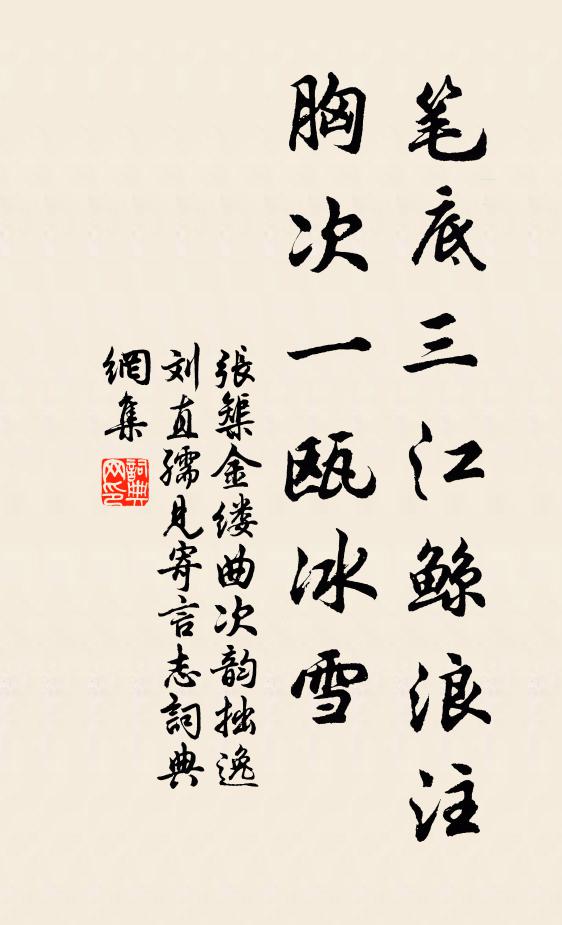 笔底三江鲸浪注
胸次一瓯冰雪
張榘金缕曲次韵拙逸
刘直孺见寄言志詞典
網集
詞典
网印